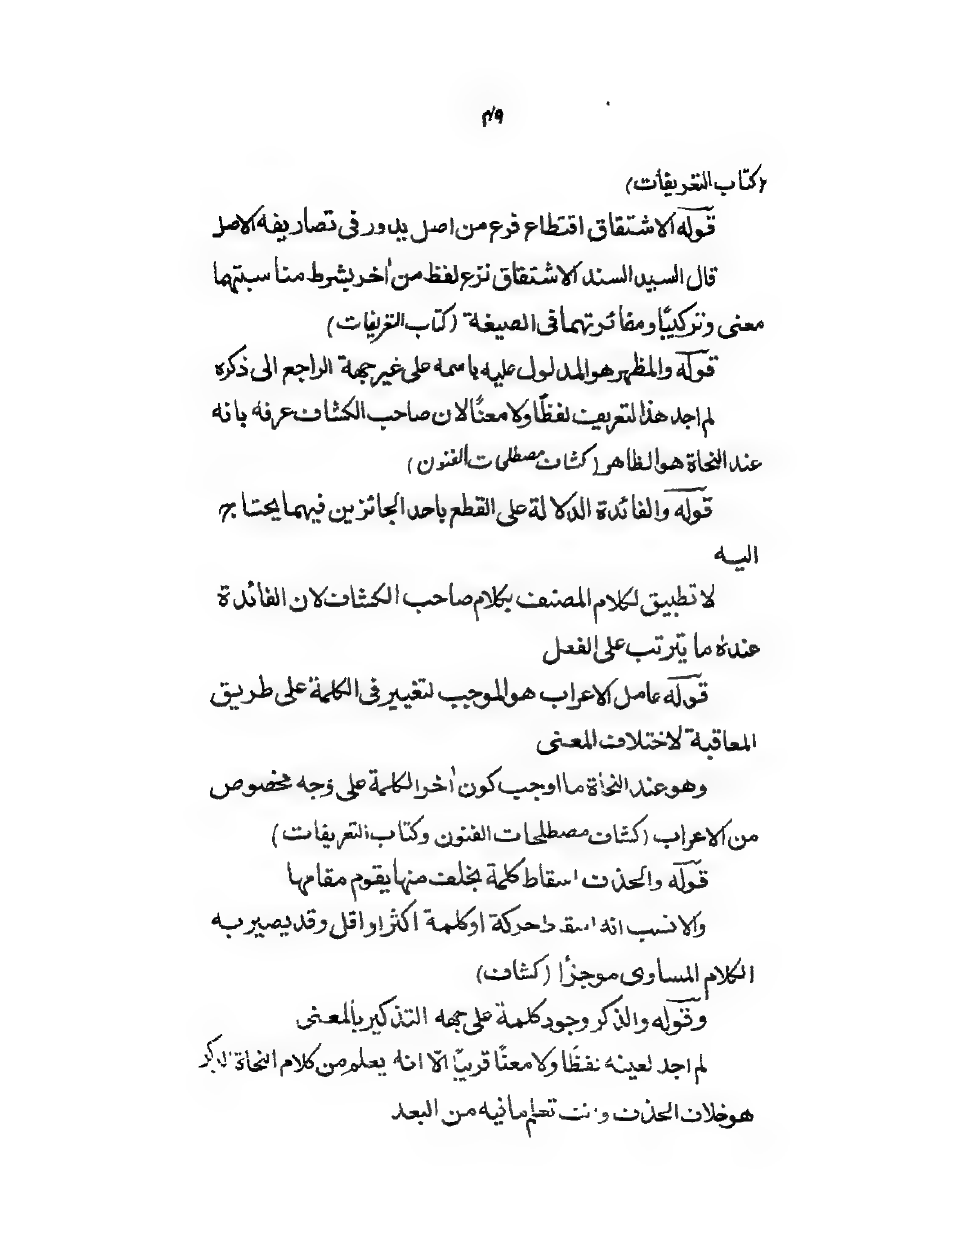 ۴۹
(كتاب التعريفات)
قوله الاشتقاق اقتطاع فرع من اصل يدور في تصاريفه الاصل
قال السيد السند الاشتقاق نزع لفظ من أخر بشرط مناسبتهما
معنى وتركيبًا ومغائرتهما فى الصيغة (كتاب التعريفات)
قوله والمظهر هو المدلول عليه باسمه على غير جهة الراجع الى ذكره
لم اجد هذا لتعريف لفظًا ولا معنًا لان صاحب الكشاف عرفه بانه
عند النحاة هو الظاهر (كشاف مصطلحات الفنون)
قوله والفائدة الدلالة على القطع باحد الجائزين فيهما يحتاج
اليه
لا تطبيق لكلام المصنف بكلام صاحب الكشاف لان الفائدة
عنده ما يترتب على الفعل
قوله عامل الاعراب هو الموجب لتغيير فى الكلمة على طريق
المعاقبة لاختلاف المعنى
وهو عند النحاة ما اوجب كون أخر الكلمة على وجه مخصوص
من الاعراب (كشاف مصطلحات الفنون وكتاب التعريفات)
قوله والحذف اسقاط كلمة بخلف منها يقوم مقامها
والانسب انه اسقاط حركة اوكلمة اكثر او اقل وقد يصير به
الكلام المساوى موجزًا (كشاف)
وقوله والذكر وجود كلمة على جهه التذكير بالمعنى
لم اجد لعينه لفظًا ولا معنًا قريبًا الّا انه يعلم من كلام النحاة الذكر
هو خلاف الحذف وانت تعلم مافيه من البعد